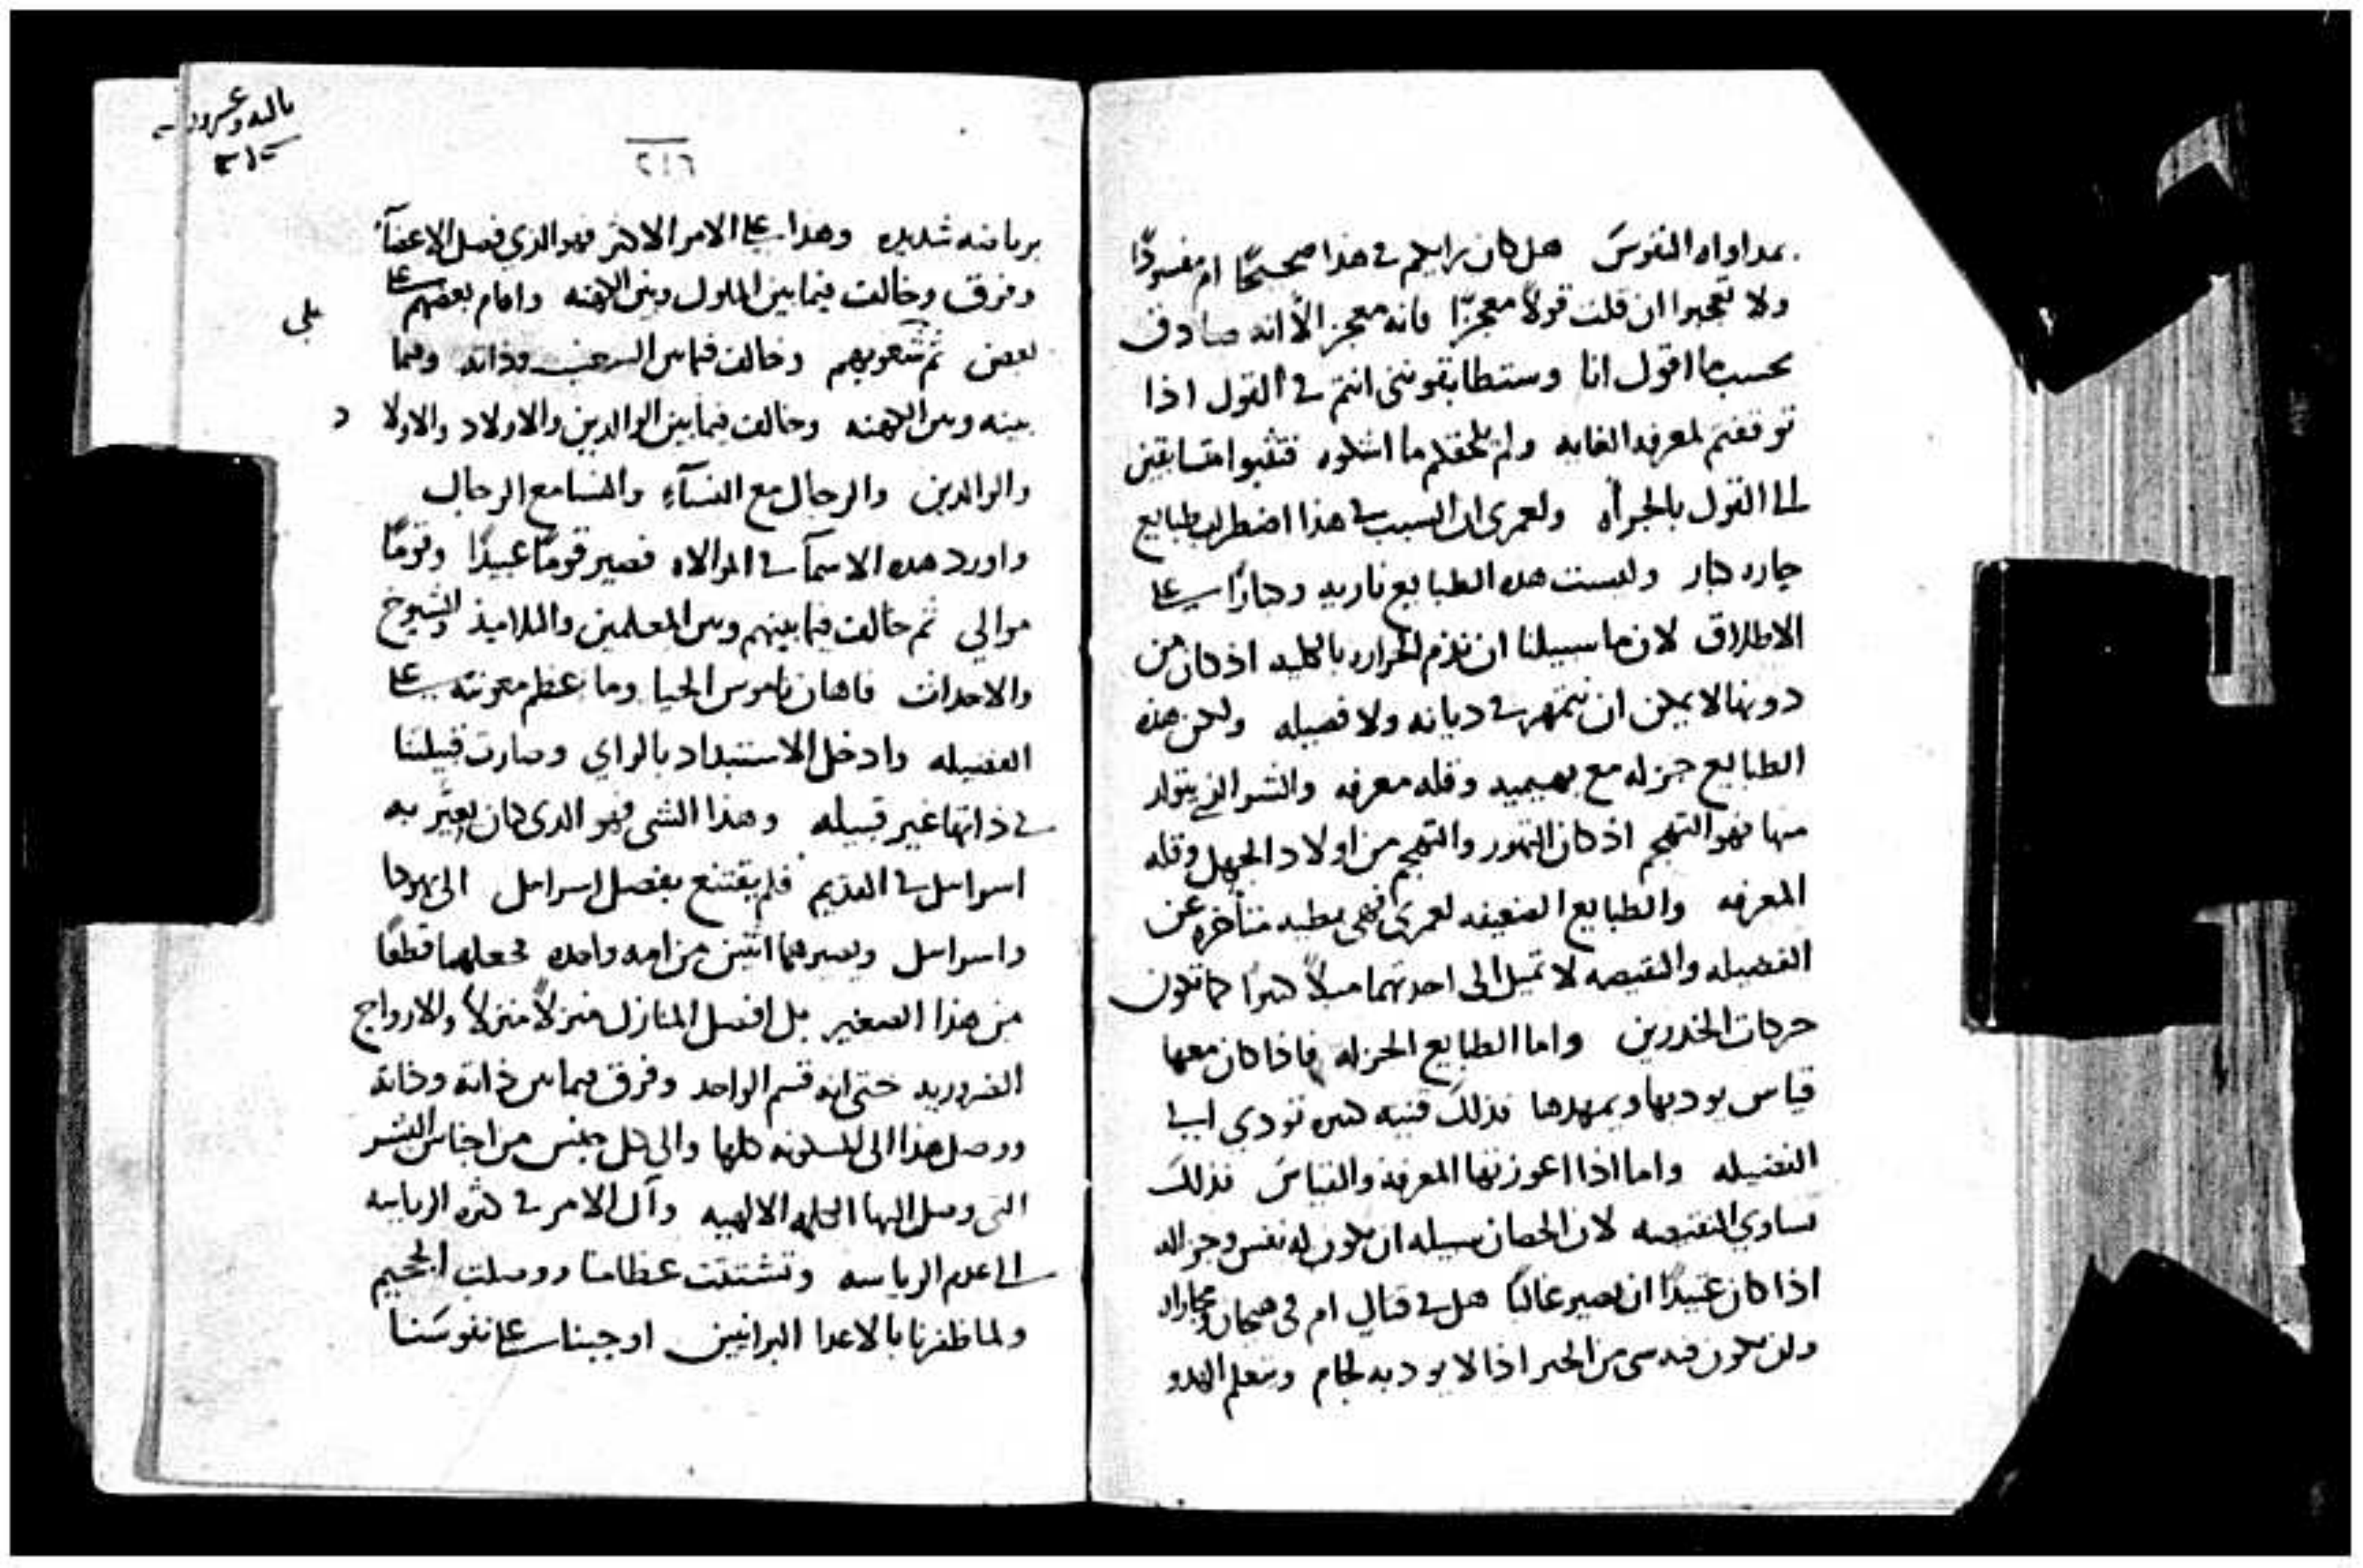 بمداواه النفوسَ هل كان رايكم في هذا صحيحًا ام مفسودًا
ولا تعجبوا ان قلت قولاً معجزًا فانه معجز الاّ انه صادق
بحسب ما اقول انا وستطابقونني انتم في القول اذا
توقفتم لمعرفه الغايه ولم يلحقكم ما اشكوه فتثبوا متسابقين
الى القول بالجراه ولعمرى ان السبب في هذا اضطراب طبايع
حاره كبار وليست هذه الطبايع ناريه وكبارًا على
الاطلاق لان ما سبيلنا ان نذم الحراره بالكليه اذ كان من
دونها لا يمكن ان نتمهر في ديانه ولا فضيله ولكن هذه
الطبايع جزله مع بهيميه وقله معرفه والشر الذي يتولد
منها فهو التهجم اذ كان التهور والتهجم من اولاد الجهل وقله
المعرفه والطبايع الضعيفه لعمرى فهي بطيه متأخره عن
الفضيله والنقيصه لا تميل الى احدتهما ميلاً كبيرًا كما تكون
حركات الخدرين واما الطبايع الجزله فاذا كان معها
قياس يودبها ويمهدها فذلك قنيه كبيره تودي الى
الفضيله واما اذا اعوزتها المعرفه والقياسَ فذلك
يساوي النقيصه لان الحصان سبيله ان يكون له نفس وجزاله
اذا كان عتيدًا ان يصير غالبًا هل في قتال ام في
ولن يكون فيه شي من الخير اذا لا يودبه لجام ويتعلم الهدو
٢١٦
برياضه شديده وهذا على الامر الاكثر فهو الذي فصل الاعضآ
وفرق وخالف فيما بين الملوك وبين الكهنه واقام بعضهم على
بعض ثم شعوبهم وخالف فيما بين الشعب وذاته وفيما
بينه وبين الكهنه وخالف فيما بين الوالدين والاولاد والاولاد
والوالدين والرجال مع النسآء والنسا مع الرجال
واورد هذه الاسمآ في الموالاه فصير قومًا عبيدًا وقومًا
موالي ثم خالف فيما بينهم وبين المعلمين والتلاميذ والشيوخ
والاحداث فاهان ناموس الحيا وما عظم معونته على
الفضيله وادخل الاستبداد بالراي وصارت قبيلتنا
في ذاتها غير قبيله وهذا الشي فهو الذي كان يعيَّر به
اسراييل في القديم فلم يقتنع بفصل اسراييل الى يهودا
واسراييل ويصيرهما اثنين من امه واحده فجعلهما قطعًا
من هذا الصغير بل افصل المنازل منزلاً منزلاً والازواج
الضروريه حتى انه قسم الواحد وفرق فيما بين ذاته وذاته
ووصل هذا الى المسكونه كلها والى كل جنس من اجناس البشر
التي وصل اليها الكلمه الالهيه وآل الامر في كثره الرياسه
الى عدم الرياسه وتشتتت عظامنا ووصلت الجحيم
ولما ظفرنا بالاعدا البرانيين اوجبنا على نفوسَنا